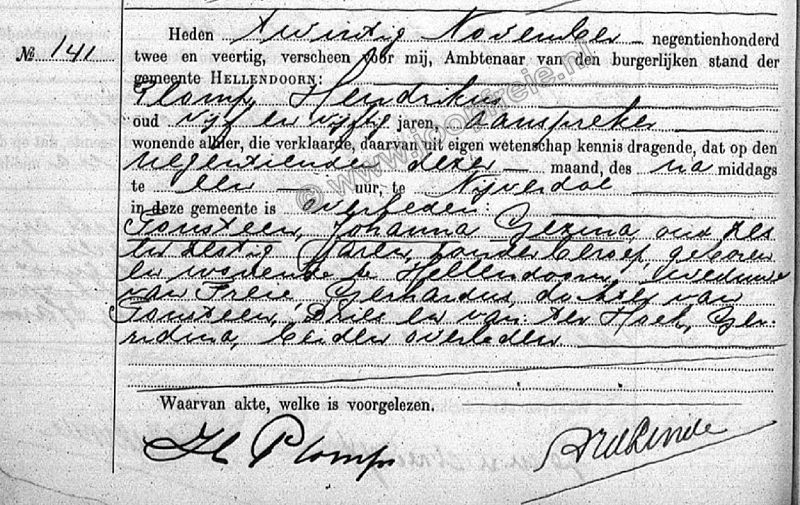 Heden twintig November negentienhonderd
№ 141
twee en veertig, verscheen voor mij, Ambtenaar van den burgerlijken stand der
gemeente HELLENDOORN:
Plomp, Hendrikus
oud vijf en vijftig jaren, aanspreker
wonende alhier, die verklaarde, daarvan uit eigen wetenschap kennis dragende, dat op den
negentienden dezer maand, des na middags
te een uur, te Nijverdal
in deze gemeente is overleden:
Fonsteen, Johanna Gezina, oud zes
en zestig jaren, zonder beroep, geboren
en wonende te Hellendoorn, weduwe
van Freie, Gerhardus, dochter van
Fonsteen, Dries en van der Hoek, Ger-
ridina, beiden overleden
Waarvan akte, welke is voorgelezen.
H Plomp
© www.joopfreie.nl